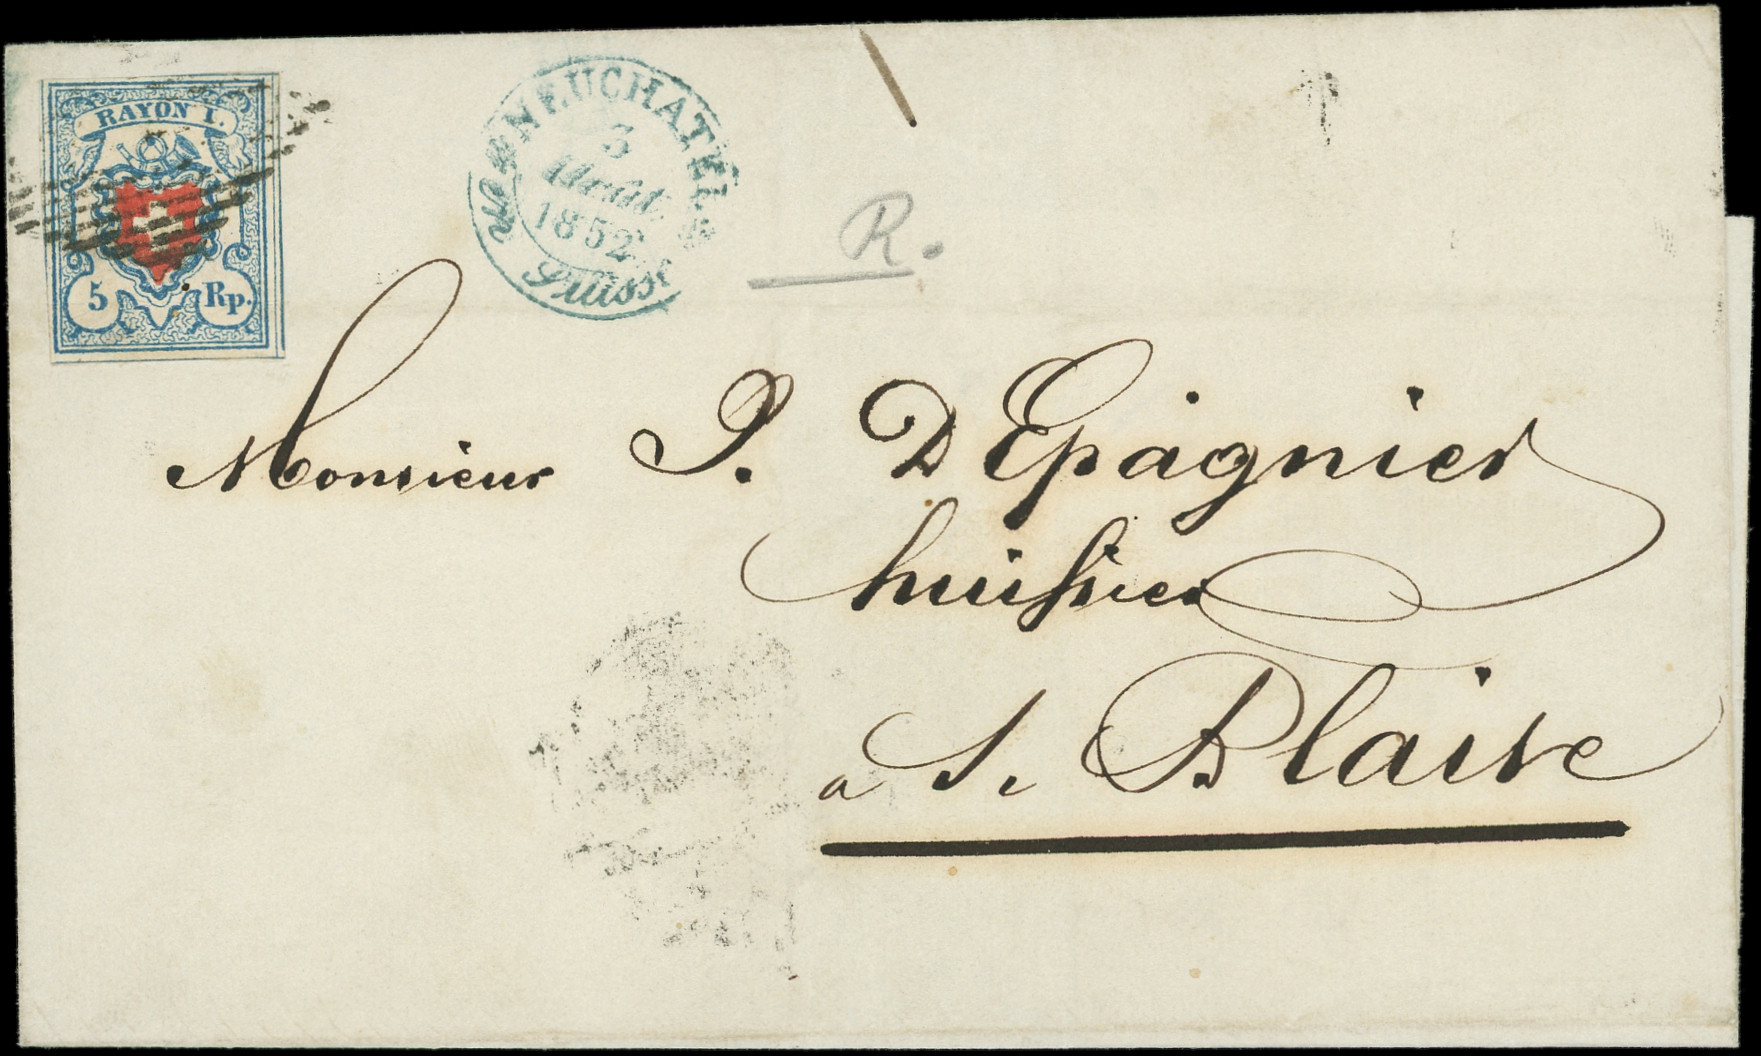 RAYON I.
5 Rp.
NEUCHATEL
3
Août
1852
en Suisse
R.
Monsieur J. DEpagnier
huissier
a St Blaise